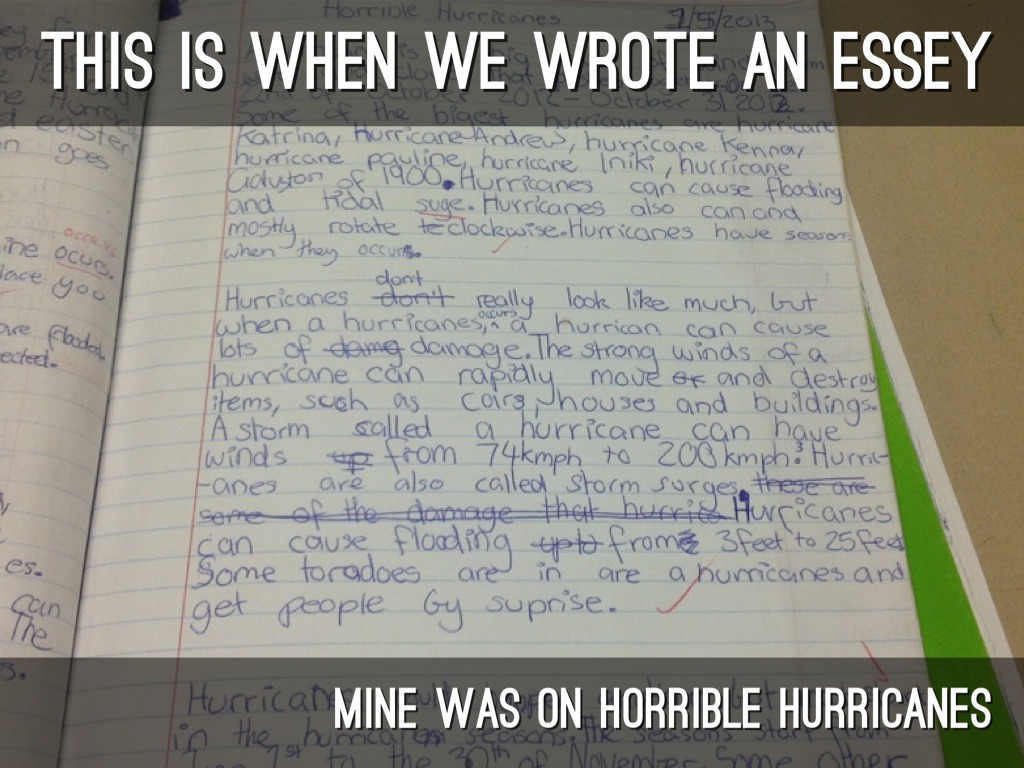 THIS IS WHEN WE WROTE AN ESSEY
Horrible Hurricanes 1/5/2013
22nd of October 2012 - October 31 2012.
Some of the biggest hurricanes are hurricane
Katrina, Hurricane Andrew, hurricane Kenna,
hurricane pauline, hurricane Iniki, hurricane
of 1900. Hurricanes can cause flooding
and tidal suge. Hurricanes also can and
mostly rotate clockwise. Hurricanes have season
when they occur.
don't
Hurricanes don't really look like much, but
occurs
when a hurricanes, a hurrican can cause
lots of damg damage. The strong winds of a
hurricane can rapidly move or and destroy
items, such as cars, houses and buildings.
A storm called a hurricane can have
winds up from 74kmph to 200kmph. Hurric-
-anes are also called storm surges. these are
some of the damage that hurrica Hurricanes
can cause flooding upto from 3feet to 25feet
Some toradoes are in are a hurricanes and
get people by suprise.
Hurricanes
in the hurrican seasons. The seasons start from
1st to the 30th of November. Some other
goes
occurs
ine occurs.
lace you
are flooded.
ected.
es.
can
The
s.
MINE WAS ON HORRIBLE HURRICANES